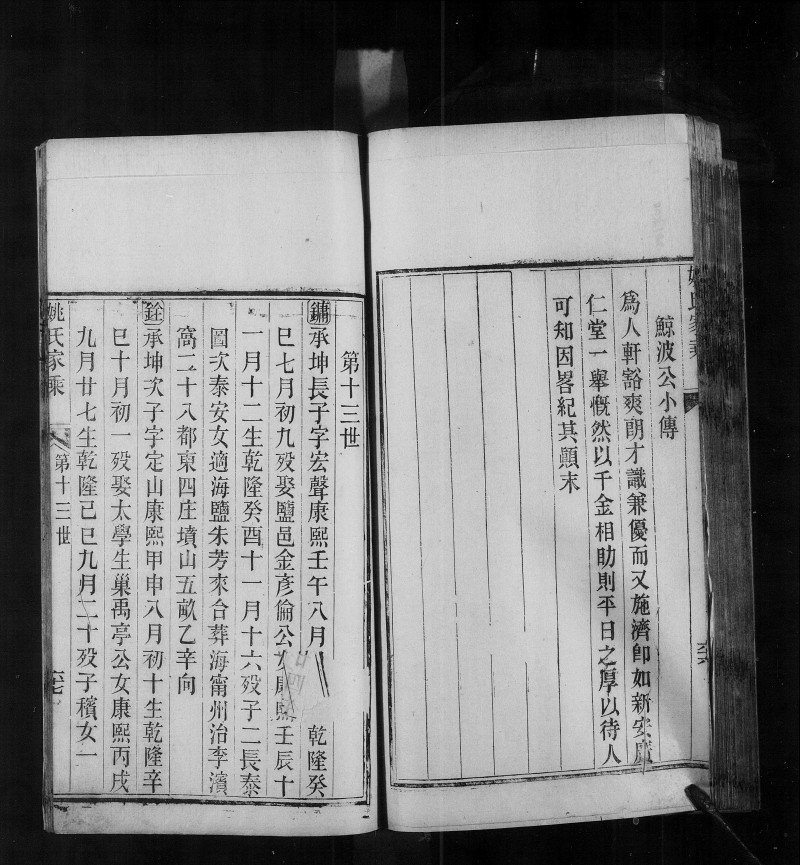 姚氏家乘
鯨波公小傳
爲人軒豁爽朗才識兼優而又施濟卽如新安廣
仁堂一舉慨然以千金相助則平日之厚以待人
可知因畧紀其顚末
第十三世
鏞承坤長子字宏聲康熙壬午八月 乾隆癸
巳七月初九歿娶鹽邑金彥倫公女康熙壬辰十
一月十二生乾隆癸酉十一月十六歿子二長泰
圖次泰安女適海鹽朱芳來合葬海甯州治李濱
窩二十八都東四庄墳山五畝乙辛向
銓承坤次子字定山康熙甲申八月初十生乾隆辛
巳十月初一歿娶太學生巢禹亭公女康熙丙戌
九月廿七生乾隆己巳九月二十歿子穦女一
姚氏家乘 第十三世